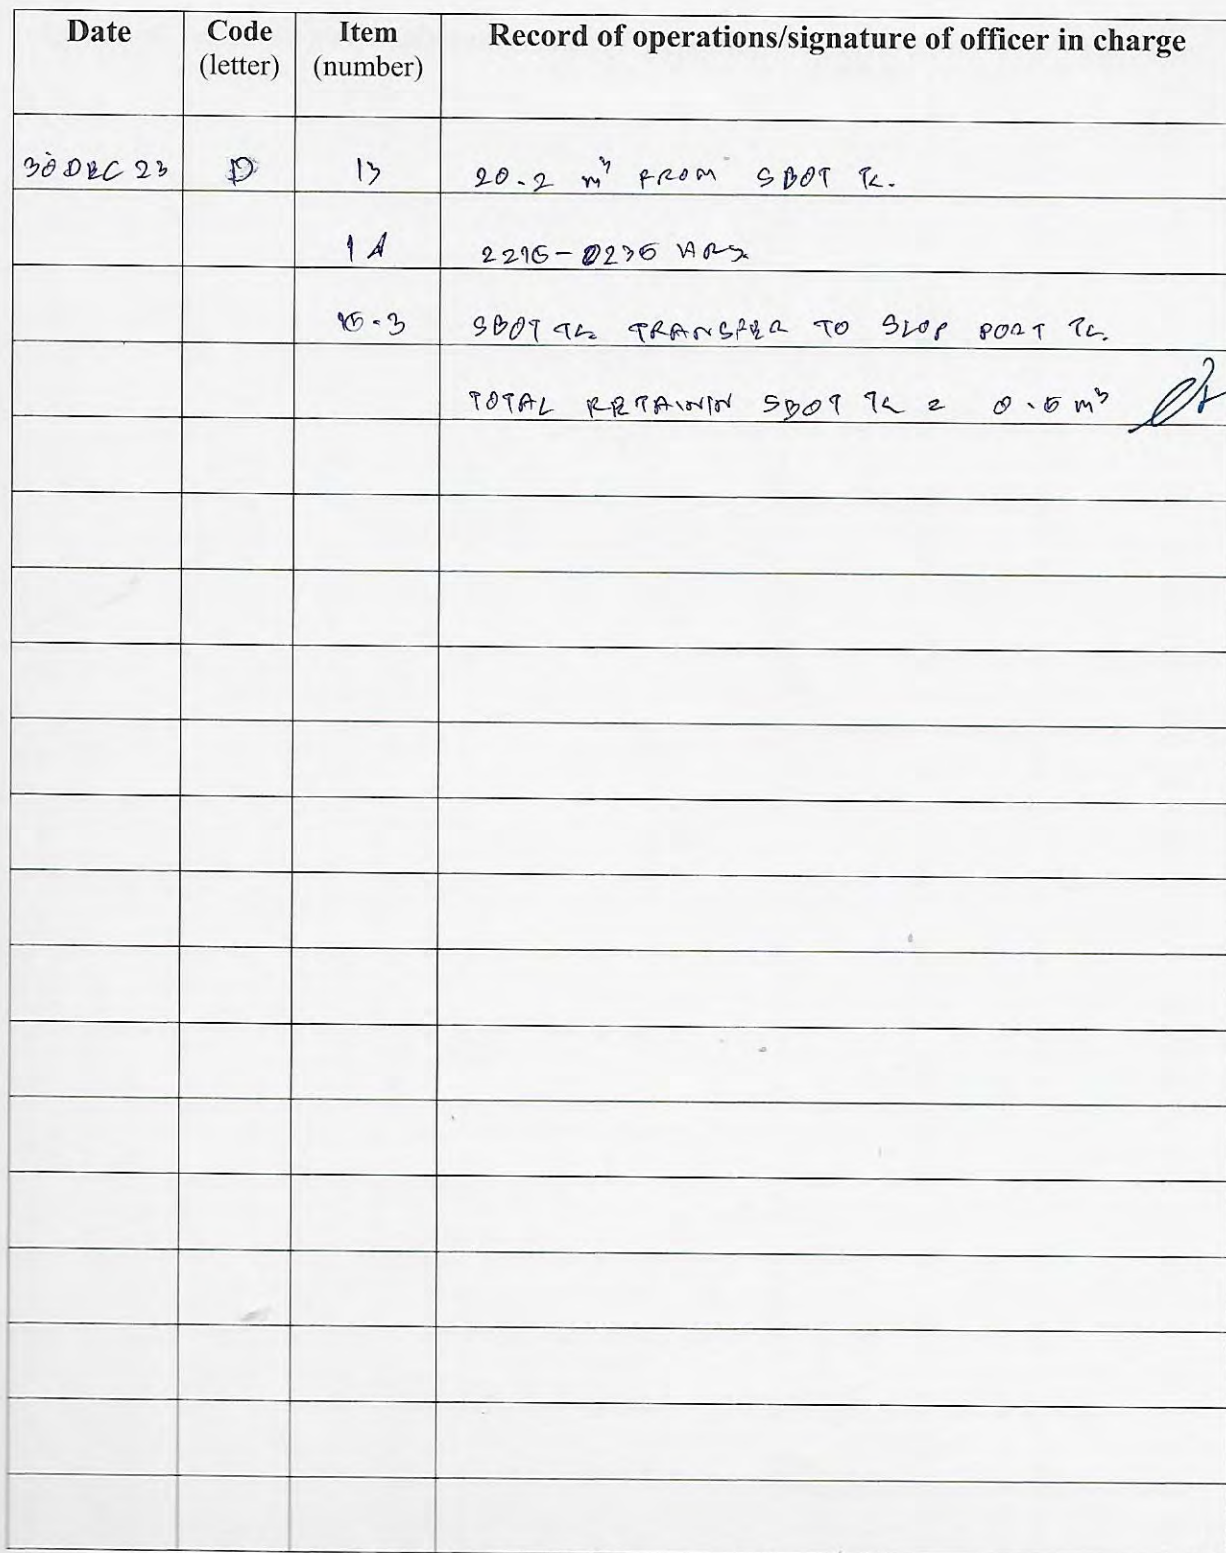 Date Code (letter) Item (number) Record of operations/signature of officer in charge
30 DEC 23 D 13 20.2 m³ FROM SBOT TK.
14 2215-0235 HRS
15.3 SBOT TK TRANSFER TO SLOP PORT TK.
TOTAL RETAININ SBOT TK = 0.5 m³